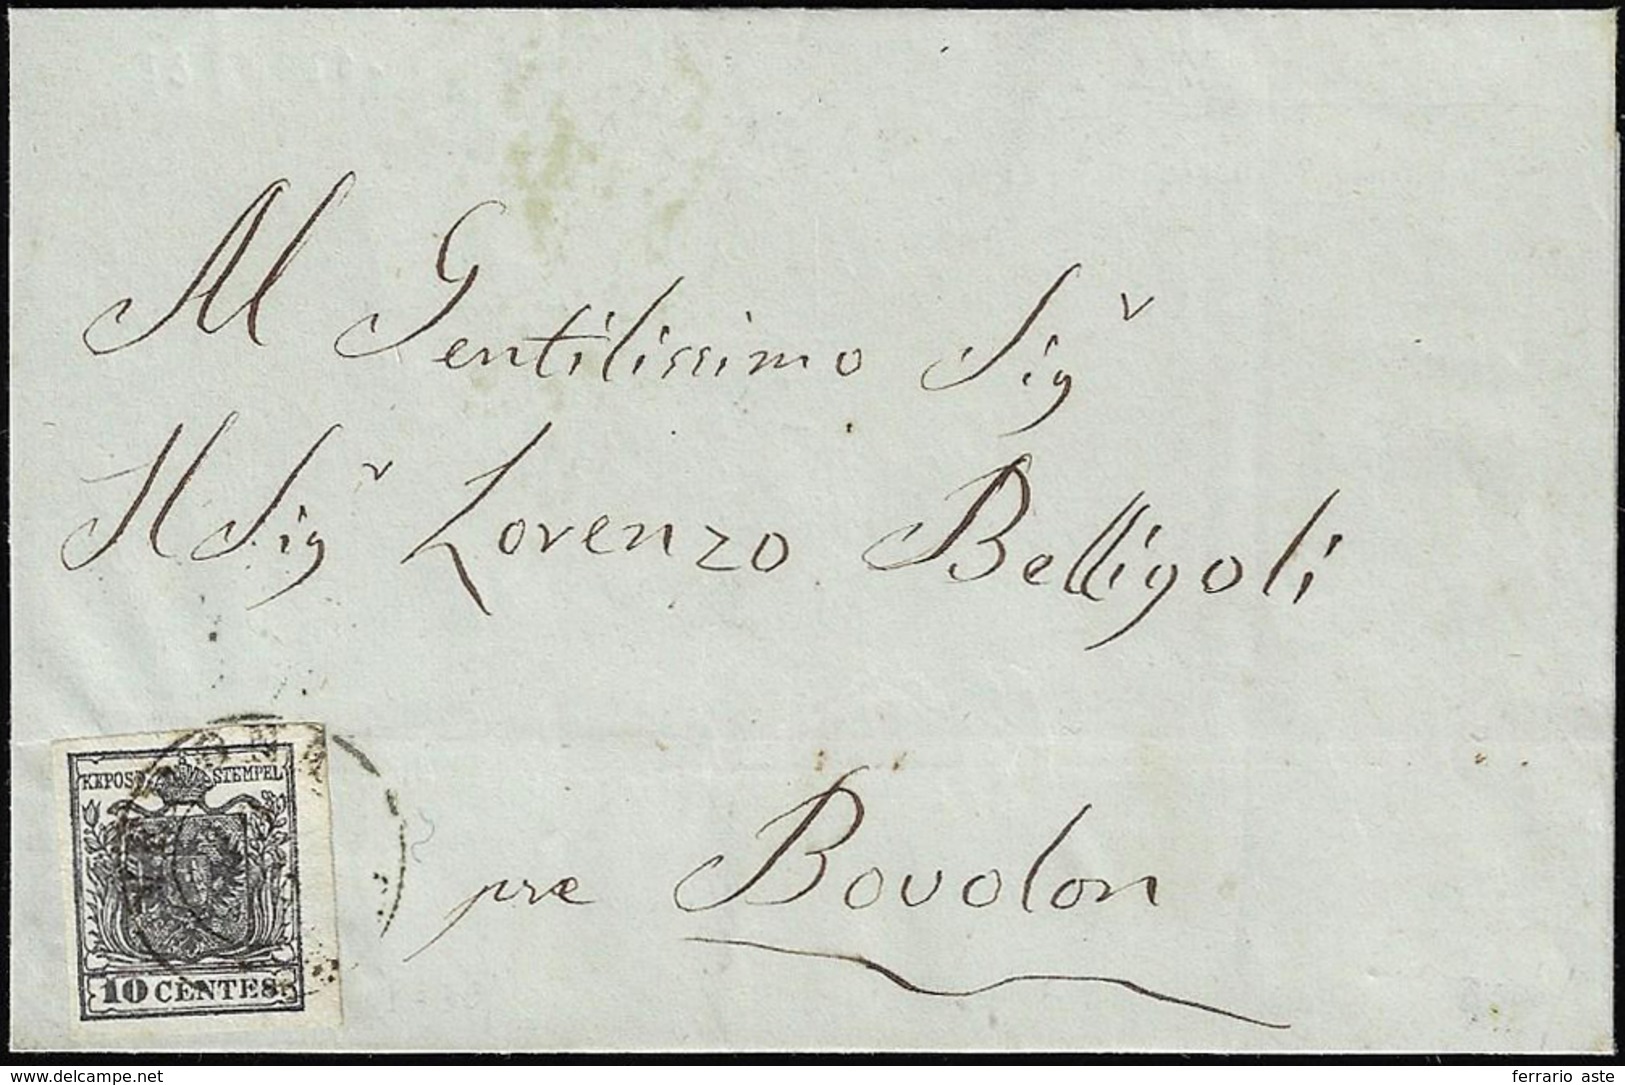 Al Gentilissimo Sigr
Il Sigr Lorenzo Belligoli
pre Bovolon
KKPOST STEMPEL
10 CENTES.
www.delcampe.net
ferrario aste